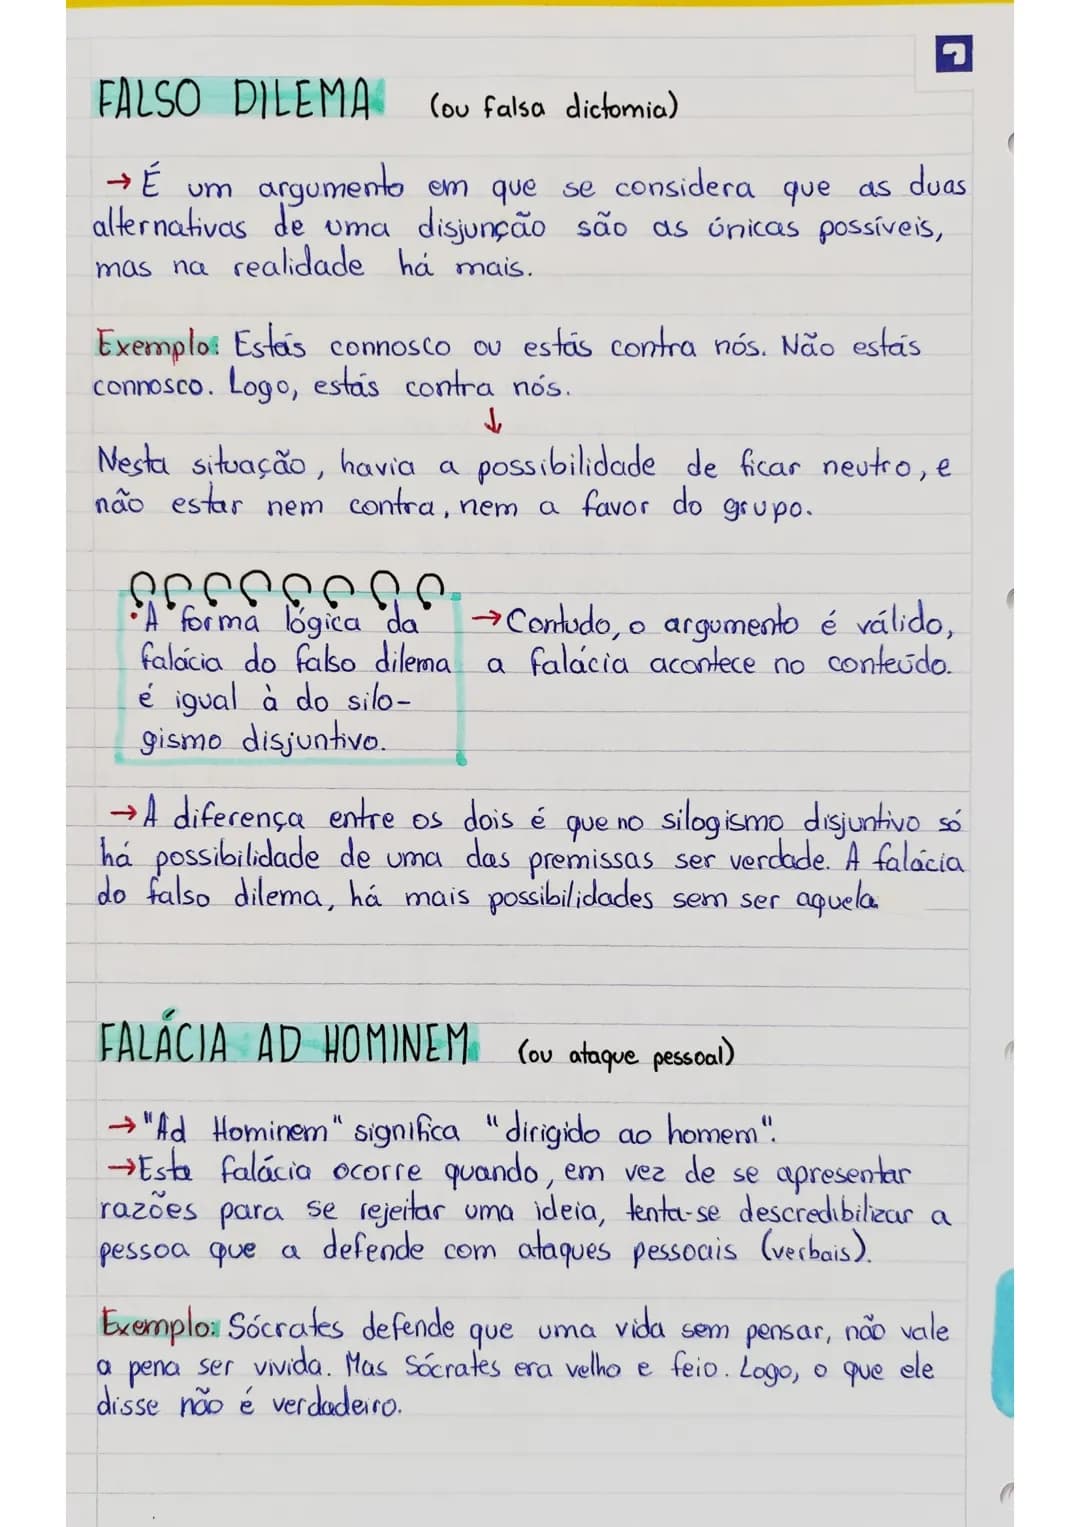 FALSO DILEMA (ou falsa dictomia)
→ É um argumento em que se considera que as duas
alternativas de uma disjunção são as únicas possíveis,
mas na realidade há mais.
Exemplo: Estás connosco ou estás contra nós. Não estás
connosco. Logo, estás contra nós.
↓
Nesta situação, havia a possibilidade de ficar neutro, e
não estar nem contra, nem a favor do grupo.
•A forma lógica da
falácia do falso dilema
é igual à do silo-
gismo disjuntivo.
→Contudo, o argumento é válido,
a falácia acontece no conteúdo.
→A diferença entre os dois é que no silogismo disjuntivo só
há possibilidade de uma das premissas ser verdade. A falácia
do falso dilema, há mais possibilidades sem ser aquela
FALÁCIA AD HOMINEM (ou ataque pessoal)
→"Ad Hominem" significa "dirigido ao homem".
→Esta falácia ocorre quando, em vez de se apresentar
razões para se rejeitar uma ideia, tenta-se descredibilizar a
pessoa que a defende com ataques pessoais (verbais).
Exemplo: Sócrates defende que uma vida sem pensar, não vale
a pena ser vivida. Mas Sócrates era velho e feio. Logo, o que ele
disse não é verdadeiro.